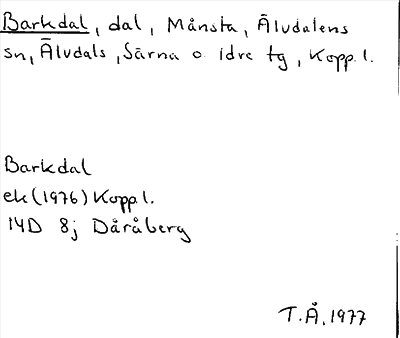 Barkdal, dal, Månsta, Älvdalens
sn, Älvdals, Särna o. idre tg, Kopp.l.
Barkdal
ek (1976) Kopp.l.
14D 8j Dåråberg
T.Å. 1977